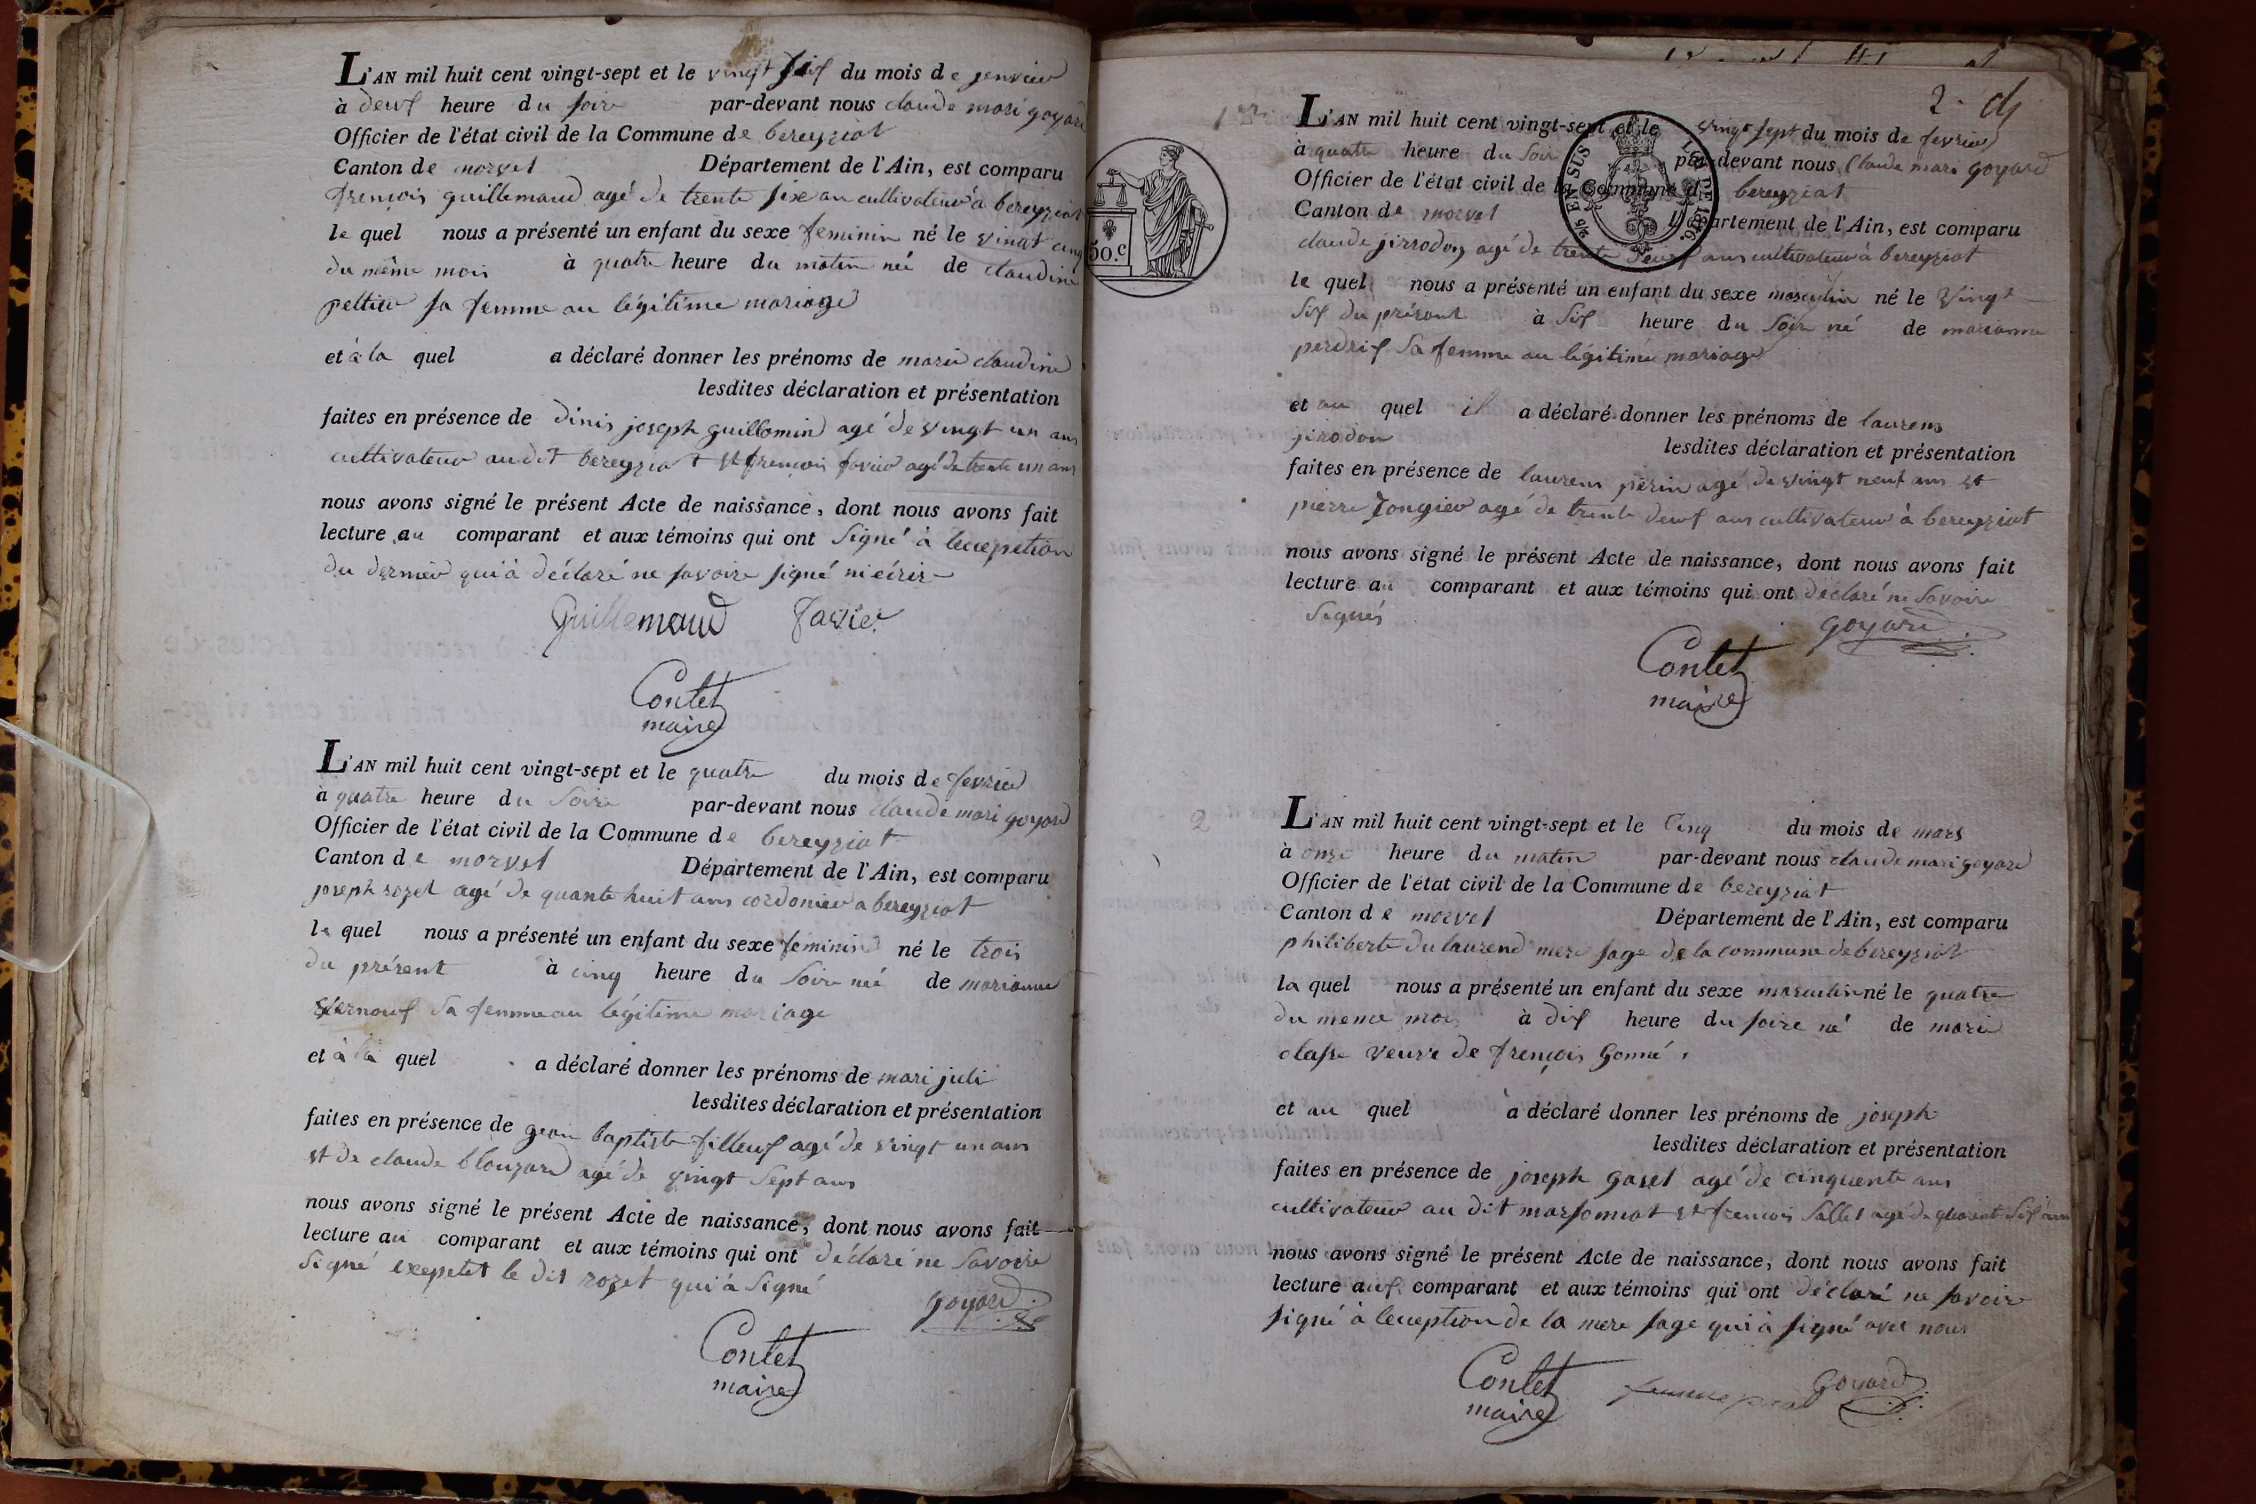 L'AN mil huit cent vingt-sept et le vingt six du mois de jenvier
à deux heure du soire par-devant nous claude mari goyard
Officier de l'état civil de la Commune de bereyziat
Canton de morvel Département de l'Ain, est comparu
frençois guillemaud agé de trente six an cultivateur à bereyziat
le quel nous a présenté un enfant du sexe feminin né le vingt cinq
du même mois à quatre heure du matin né de claudine
peltier sa femme au légitime mariage
et à la quel a déclaré donner les prénoms de marie claudine
lesdites déclaration et présentation
faites en présence de dinis joseph guillomin agé de vingt un ans
cultivateur au dit bereyziat et françois favier agé de trente un ans
nous avons signé le présent Acte de naissance, dont nous avons fait
lecture au comparant et aux témoins qui ont signé à lecepetion
du dernier qui à déclaré ne savoire signé ni écrire
Guillemaud favier
Contet
maire
L'AN mil huit cent vingt-sept et le quatre du mois de fevrier
à quatre heure du soire par-devant nous claude mari goyard
Officier de l'état civil de la Commune de bereyziat
Canton de morvel Département de l'Ain, est comparu
joseph rozet agé de quante huit ans cordonier a bereyziat
le quel nous a présenté un enfant du sexe feminin né le trois
du présent à cinq heure du soire né de marianne
vernouf sa femme au légitime mariage
et à la quel a déclaré donner les prénoms de mari juli
lesdites déclaration et présentation
faites en présence de gean baptiste filleuf agé de vingt un ans
et de claude blouzard agé de vingt sept ans
nous avons signé le présent Acte de naissance, dont nous avons fait
lecture au comparant et aux témoins qui ont déclaré ne savoire
signé exepetet le dit rozet qui à signé
goyard
Contet
maire
2.
50.c
L'AN mil huit cent vingt-sept et le vingt sept du mois de fevrier
à quatre heure du soir par-devant nous Claude mari goyard
Officier de l'état civil de la Commune de bereyziat
Canton de morvel Département de l'Ain, est comparu
claude jirrodon agé de trente deux ans cultivateur à bereyziat
le quel nous a présenté un enfant du sexe masculin né le vingt
six du présent à six heure du soire né de marianne
perdrix sa femme au légitime mariage
et au quel il a déclaré donner les prénoms de laurens
jirodon lesdites déclaration et présentation
faites en présence de laurens périn agé de vingt neuf ans et
pierre Jongier agé de trente deux ans cultivateur à bereyziat
nous avons signé le présent Acte de naissance, dont nous avons fait
lecture au comparant et aux témoins qui ont déclaré ne savoire
signés
goyard
Contet
maire
L'AN mil huit cent vingt-sept et le cinq du mois de mars
à onze heure du matin par-devant nous claude mari goyard
Officier de l'état civil de la Commune de bereyziat
Canton de morvel Département de l'Ain, est comparu
philiberte du laurend mere sage de la commune de bereyziat
la quel nous a présenté un enfant du sexe masculin né le quatre
du meme mois à dix heure du soire né de marie
classe veuve de françois Gonné
et au quel a déclaré donner les prénoms de joseph
lesdites déclaration et présentation
faites en présence de joseph garet agé de cinquente ans
cultivateur au dit marsonnat et frencois sallet agé de quarant six ans
nous avons signé le présent Acte de naissance, dont nous avons fait
lecture aux comparant et aux témoins qui ont déclaré ne savoir
signé à leception de la mere sage qui à signé avec nous
Contet goyard
maire